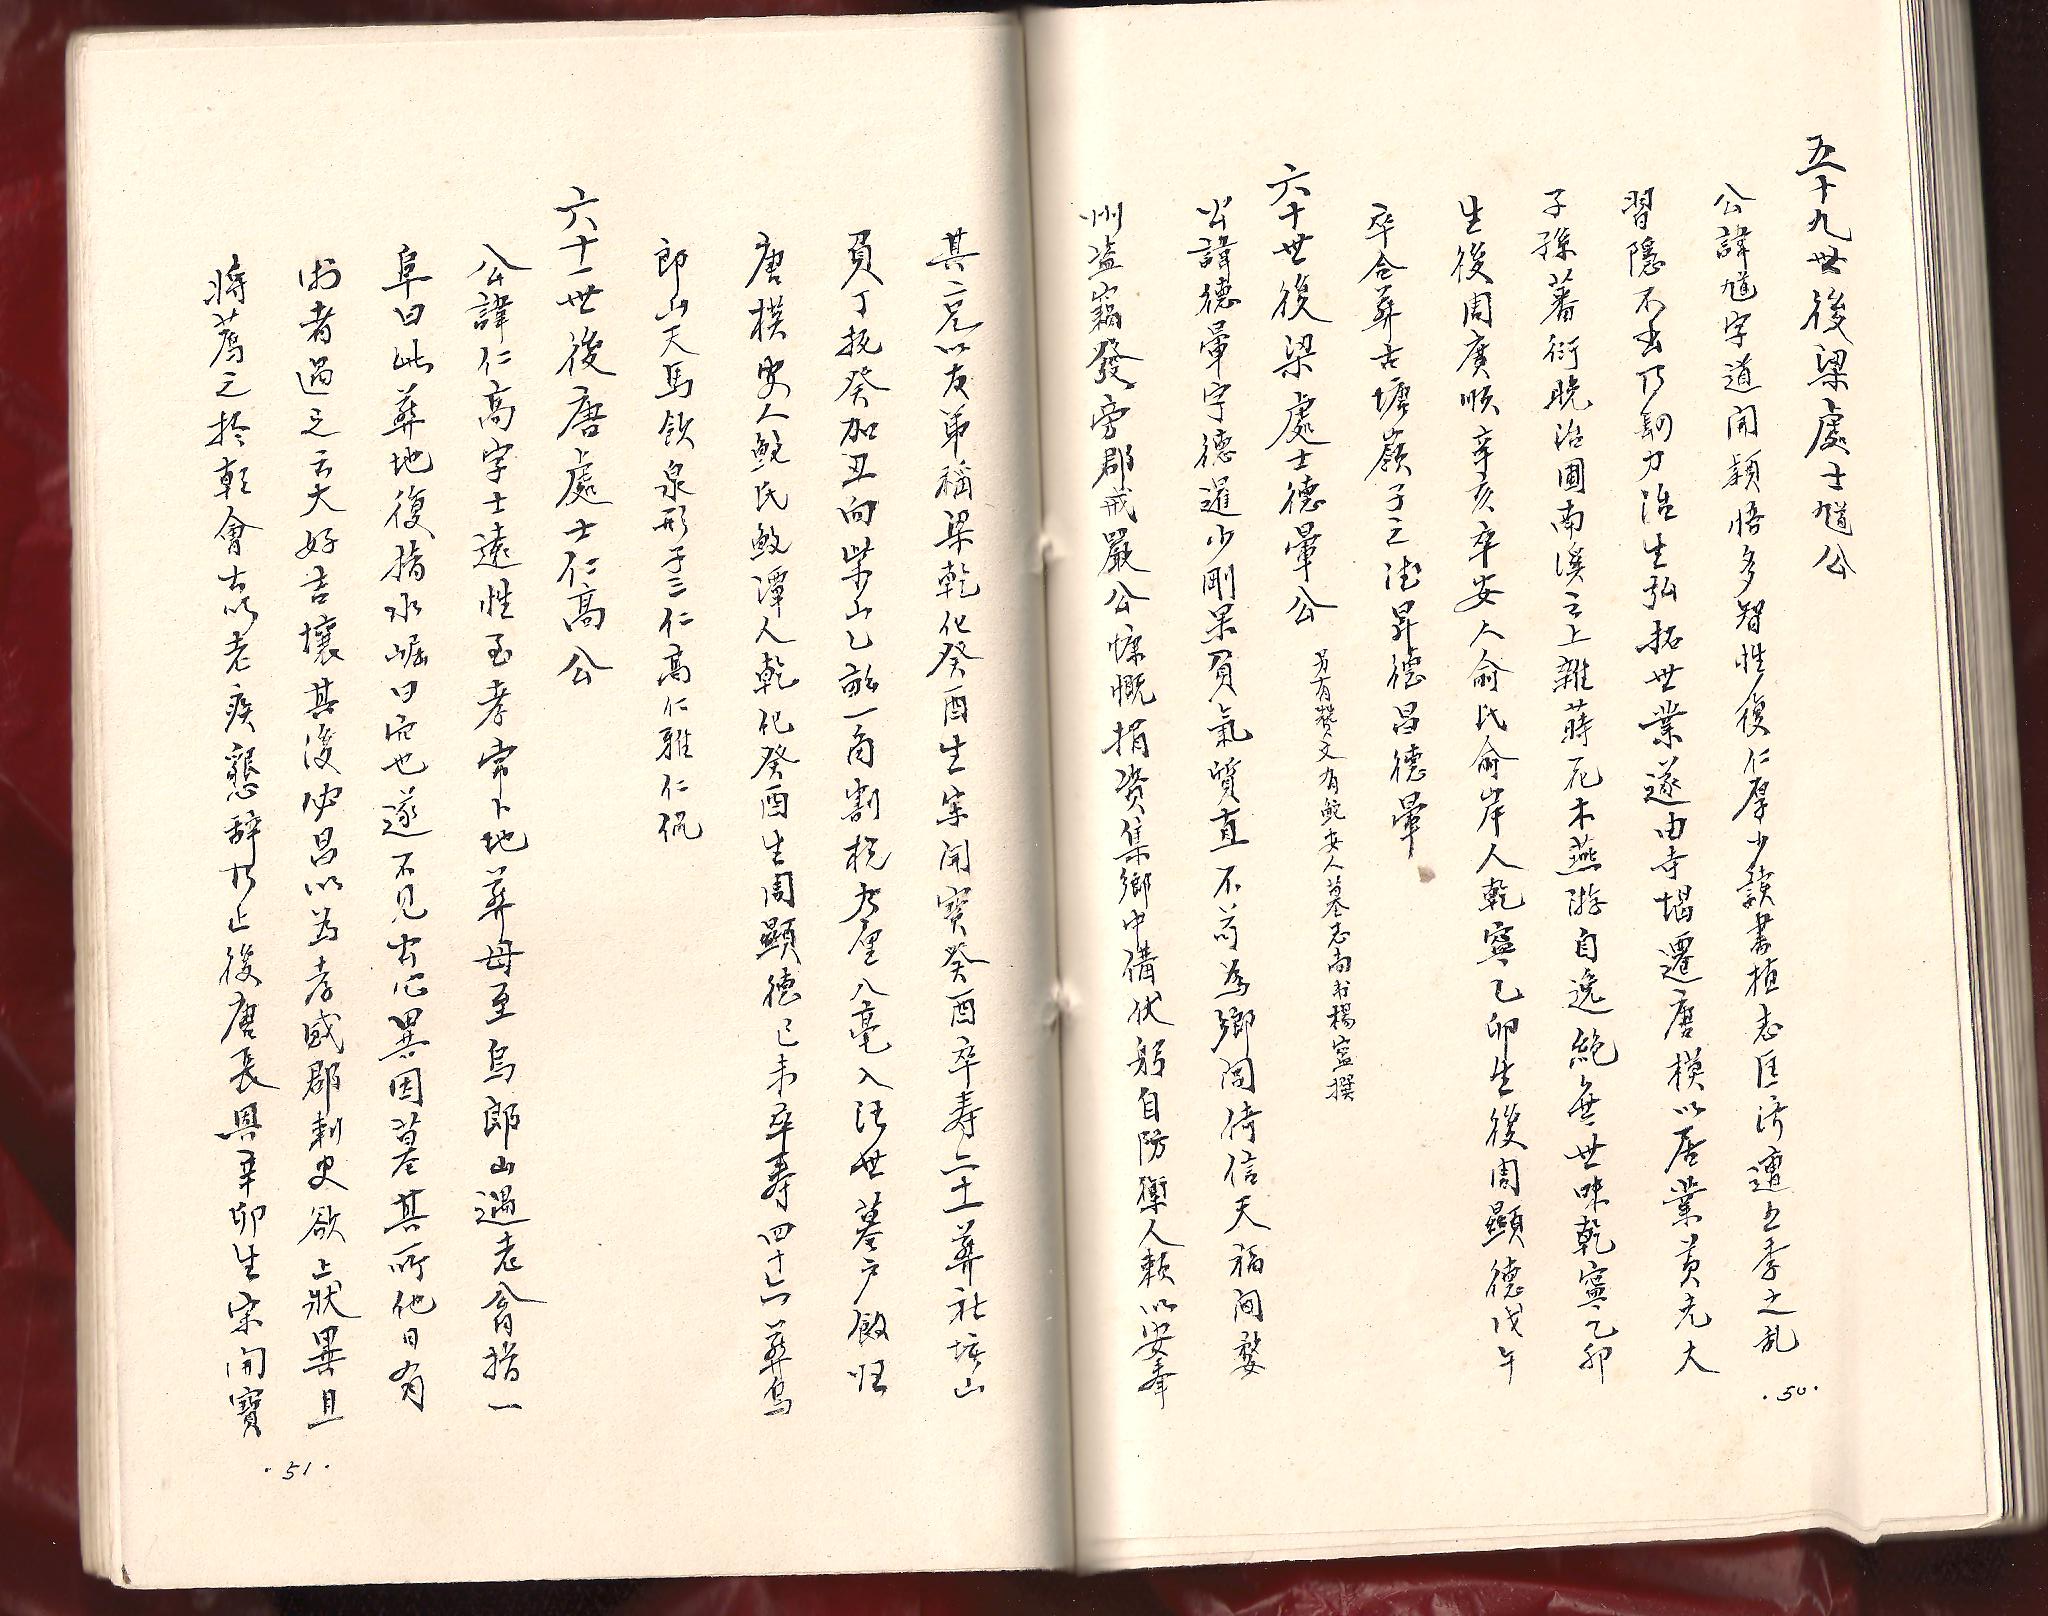 五十九世後梁處士馗公
公諱馗字道開穎悟多智性復仁厚少讀書植志匡济遭五季之乱
習隱不出乃躬力治生弘拓世業遂由寺堨遷唐模以居業黄允大
子孫蕃衍晚治圃南溪之上雜蒔花木燕游自逸絶無世味乾寧乙卯
生後周廣順辛亥卒安人俞氏俞岸人乾寧乙卯生後周顯德戊午
卒合葬古塘嶺子三德昇德昌德暈
六十世後梁處士德暈公 另有贊文有鮑安人墓志尚书楊寧撰
公諱德暈字德暹少剛果負氣質直不苟為鄉閭倚信天福间婺
州盗竊發旁郡戒嚴公慷慨捐资集鄉中備伏躬自防禦人赖以安奉
其兄以友弟稱梁乾化癸酉生宋開寶癸酉卒寿六十一葬社坑山
負丁抚癸加丑向柴山乙畝一角割税九厘八毫入汪世墓户餙归
唐模安人鮑氏鮑潭人乾化癸酉生周顯德己未卒寿四十六葬烏
郎山天馬飲泉形子三仁高仁雅仁侃
六十一世後唐處士仁高公
公諱仁高字士遠性至孝常卜地葬母至烏郎山遇老翁指一
阜曰此葬地復指水崛曰穴也遂不見公心異因墓其所他日有
術者過之云大好吉壤其後必昌以为孝感郡刺史欲上狀異且
將荐之於朝會公以老疾懇辞乃止後唐長興辛卯生宋開寶
·50·
·51·